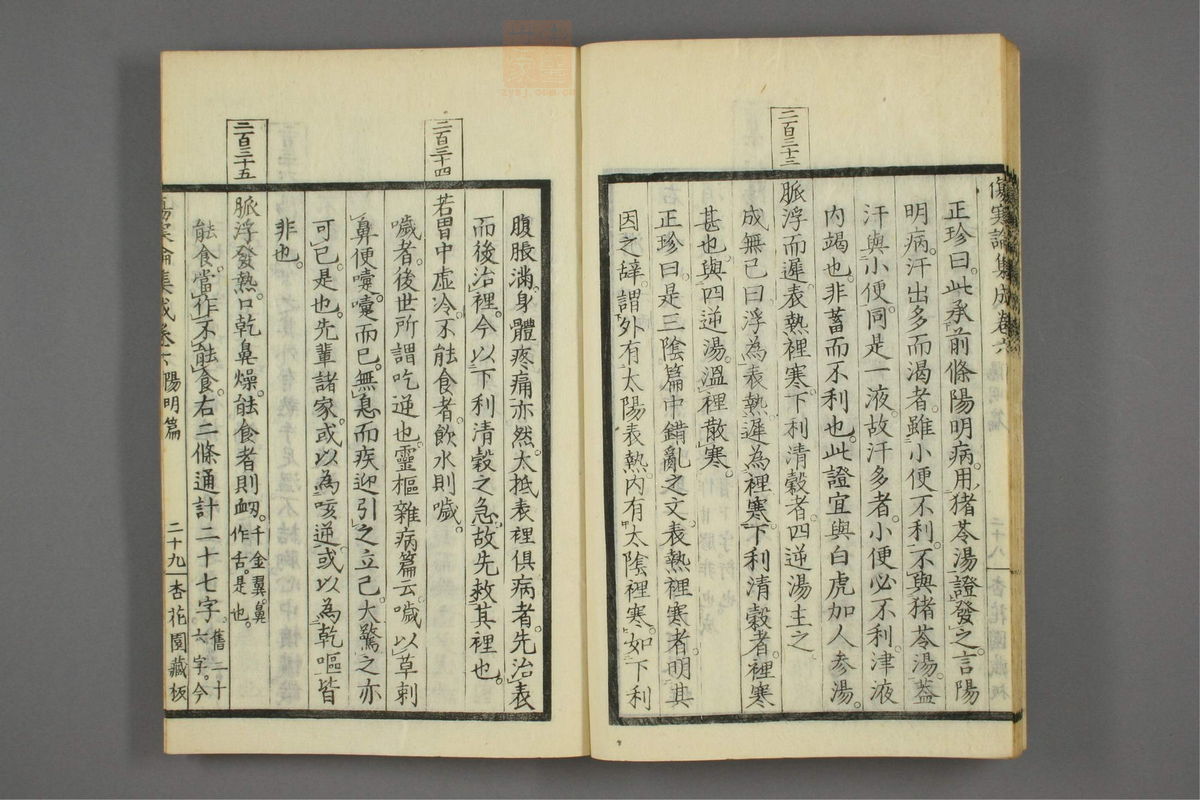 傷寒論集成卷六
正珍曰。此承前條陽明病。用猪苓湯證。發之。言陽
明病。汗出多而渴者。雖小便不利。不與猪苓湯。蓋
汗與小便。同是一液。故汗多者。小便必不利。津液
内竭也。非蓄而不利也。此證宜與白虎加人參湯。
二百三十三
脈浮而遲。表熱裡寒。下利清穀者。四逆湯主之。
成無己曰。浮為表熱。遲為裡寒。下利清穀者。裡寒
甚也。與四逆湯。溫裡散寒。
正珍曰。是三陰篇中錯亂之文。表熱裡寒者。明其
因之辞。謂外有太陽表熱。内有太陰裡寒。如下利
腹脹滿。身體疼痛亦然。大抵表裡俱病者。先治表
而後治裡。今以下利清穀之急。故先救其裡也。
二百三十四
若胃中虚冷。不能食者。飲水則噦。
噦者。後世所謂吃逆也。靈樞雜病篇云。噦以草刺
鼻便嚏。嚏而已。無息而疾迎引之立已。大驚之亦
可已。是也。先輩諸家。或以為咳逆。或以為乾嘔。皆
非也。
二百三十五
脈浮發熱。口乾鼻燥。能食者則衂。千金翼。鼻
作舌。是也。
能食。當作不能食。右二條通計二十七字。舊二十
六字。今
傷寒論集成卷六 陽明篇 二十九 杏花園藏板